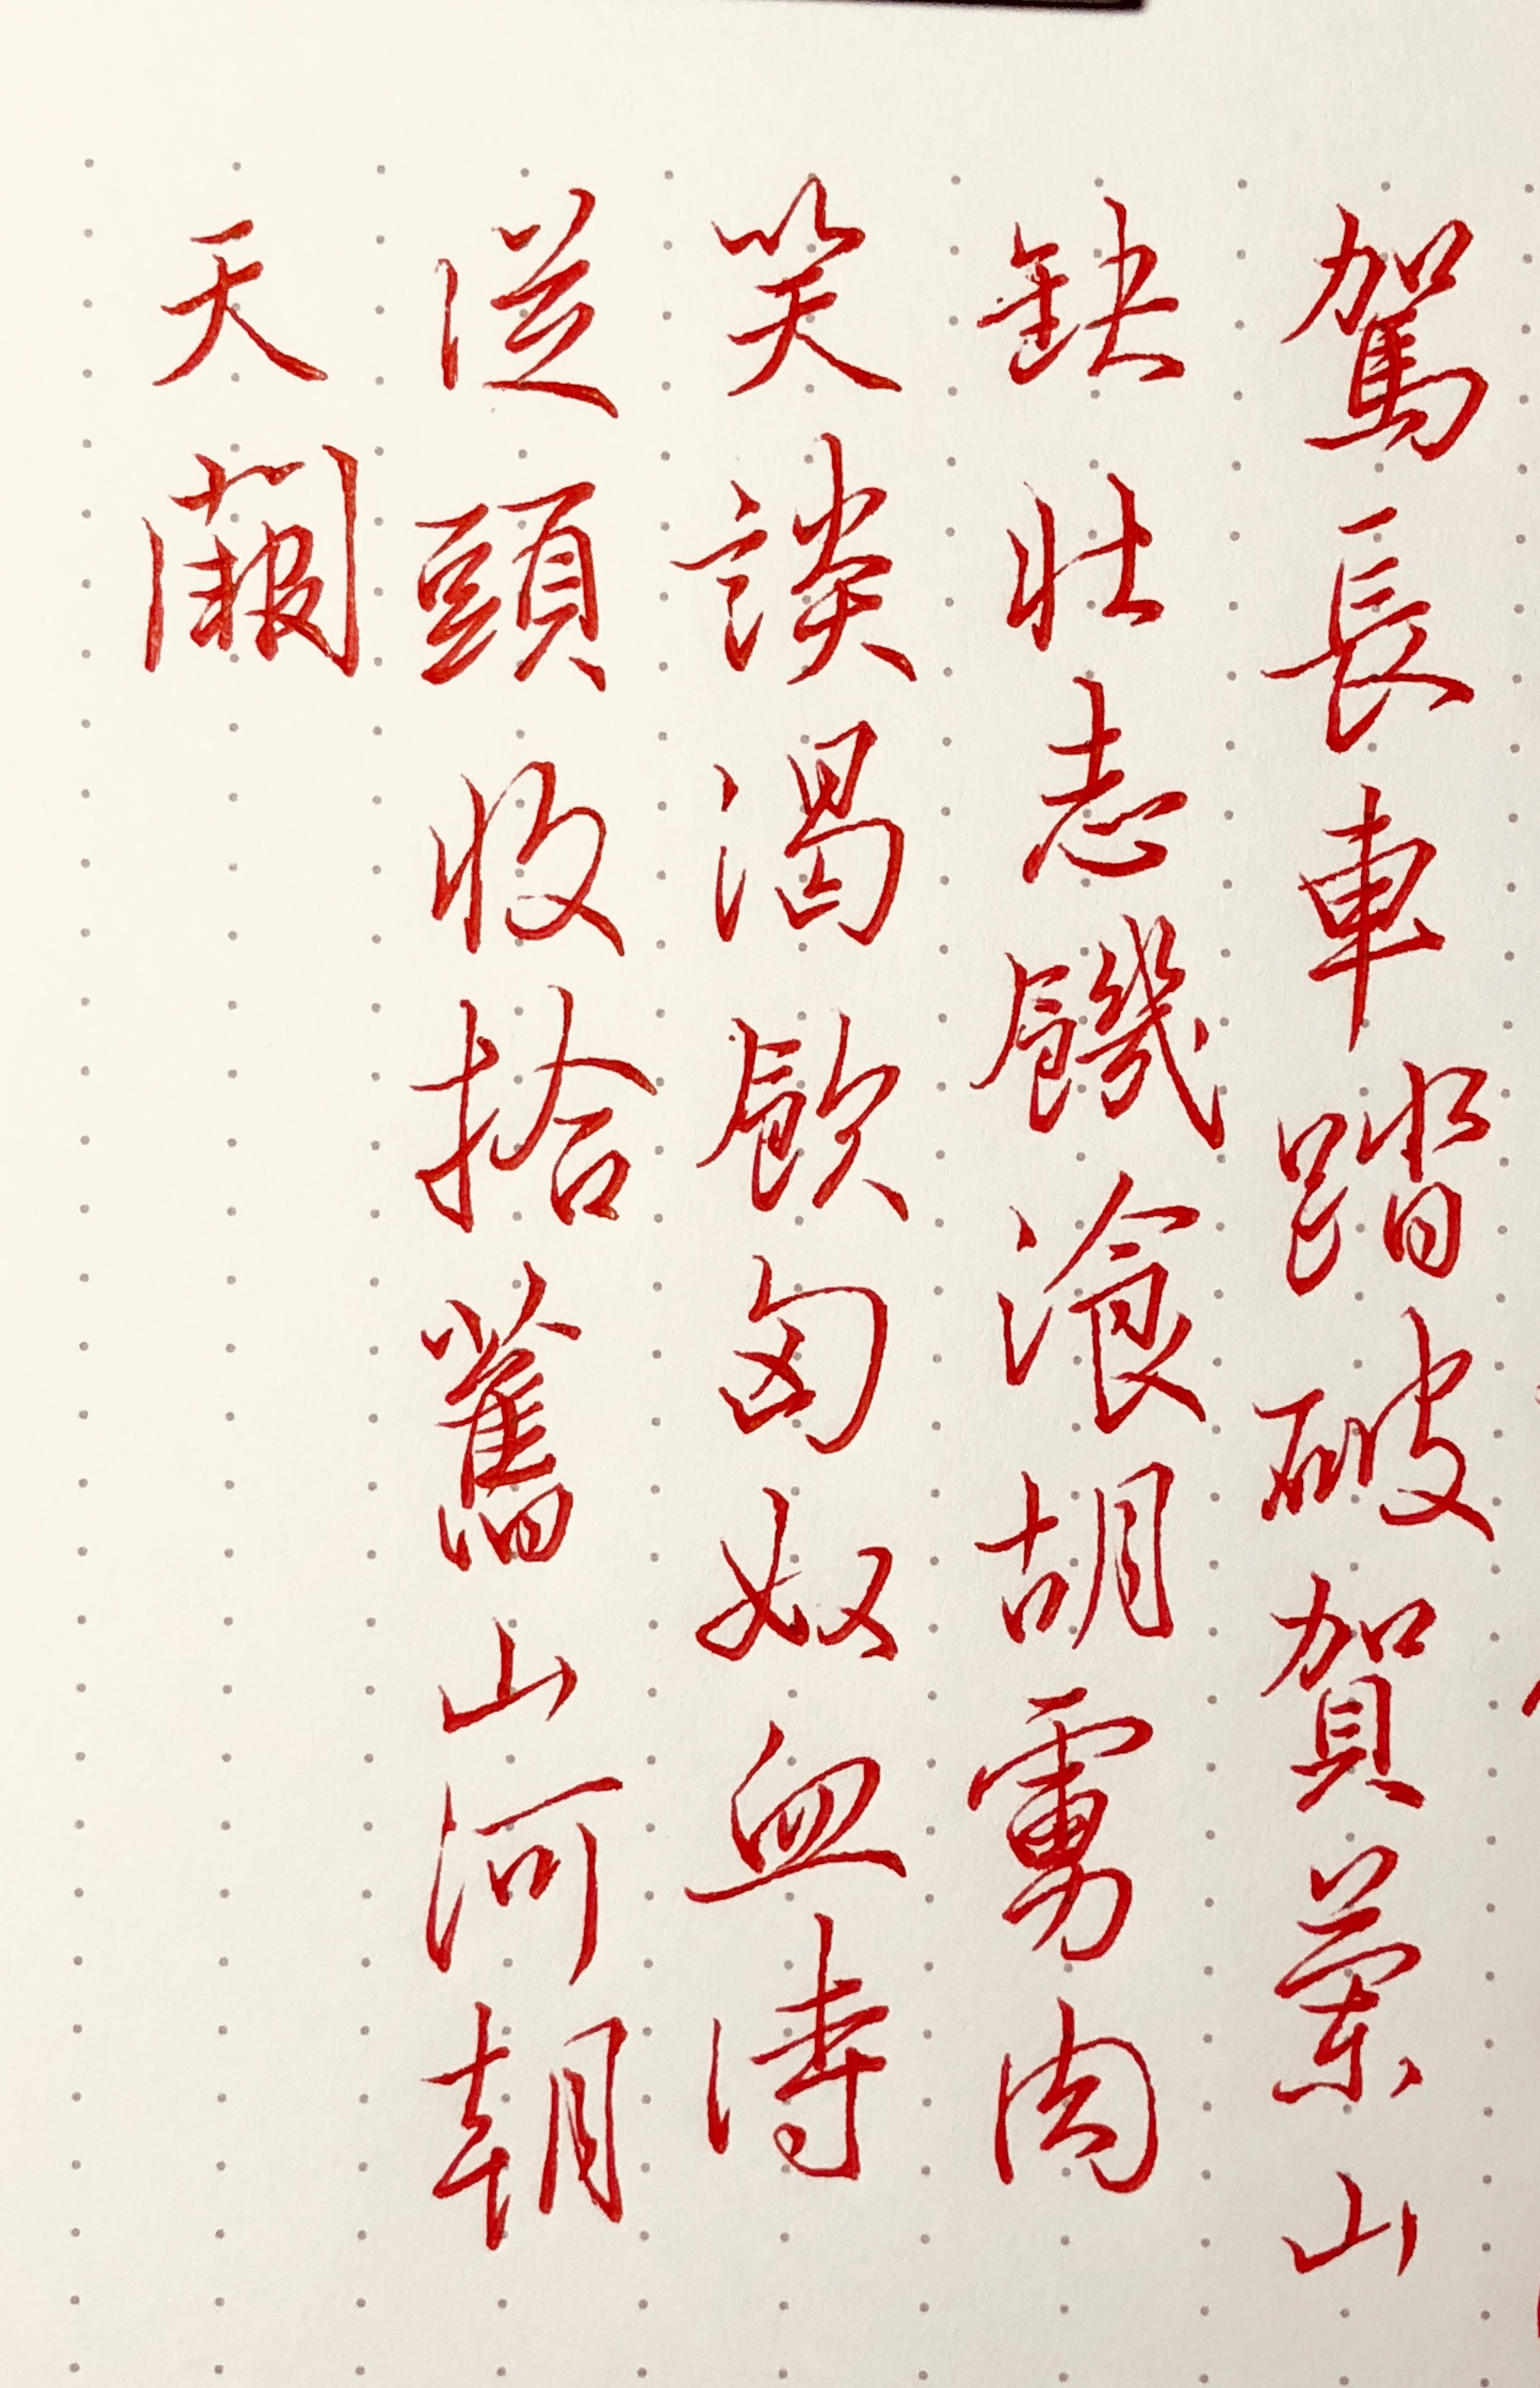 駕長車踏破賀蘭山
缺壯志饑湌胡虜肉
笑談渴飲匈奴血待
從頭收拾舊山河朝
天闕